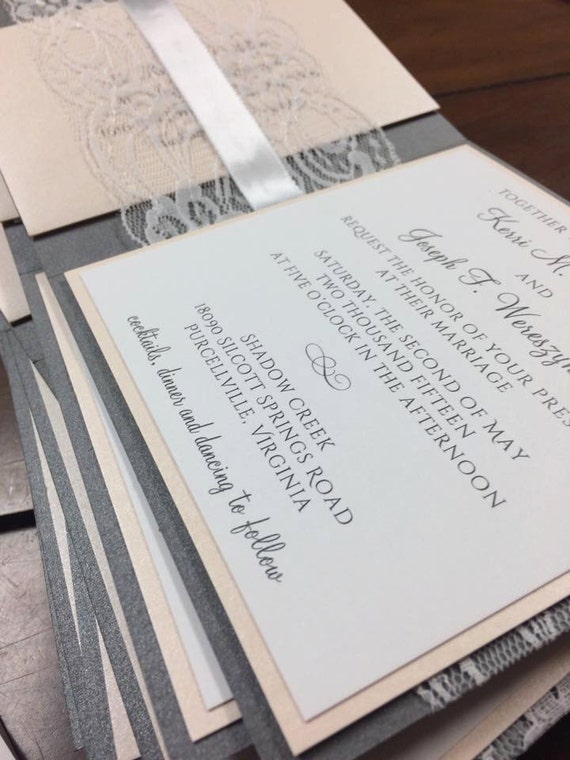 TOGETHER
Kerri M.
AND
Joseph F.
REQUEST THE HONOR OF YOUR
AT THEIR MARRIAGE
SATURDAY, THE SECOND OF MAY
TWO THOUSAND FIFTEEN
AT FIVE O'CLOCK IN THE AFTERNOON
&
SHADOW CREEK
18090 SILCOTT SPRINGS ROAD
PURCELLVILLE, VIRGINIA
cocktails, dinner and dancing to follow